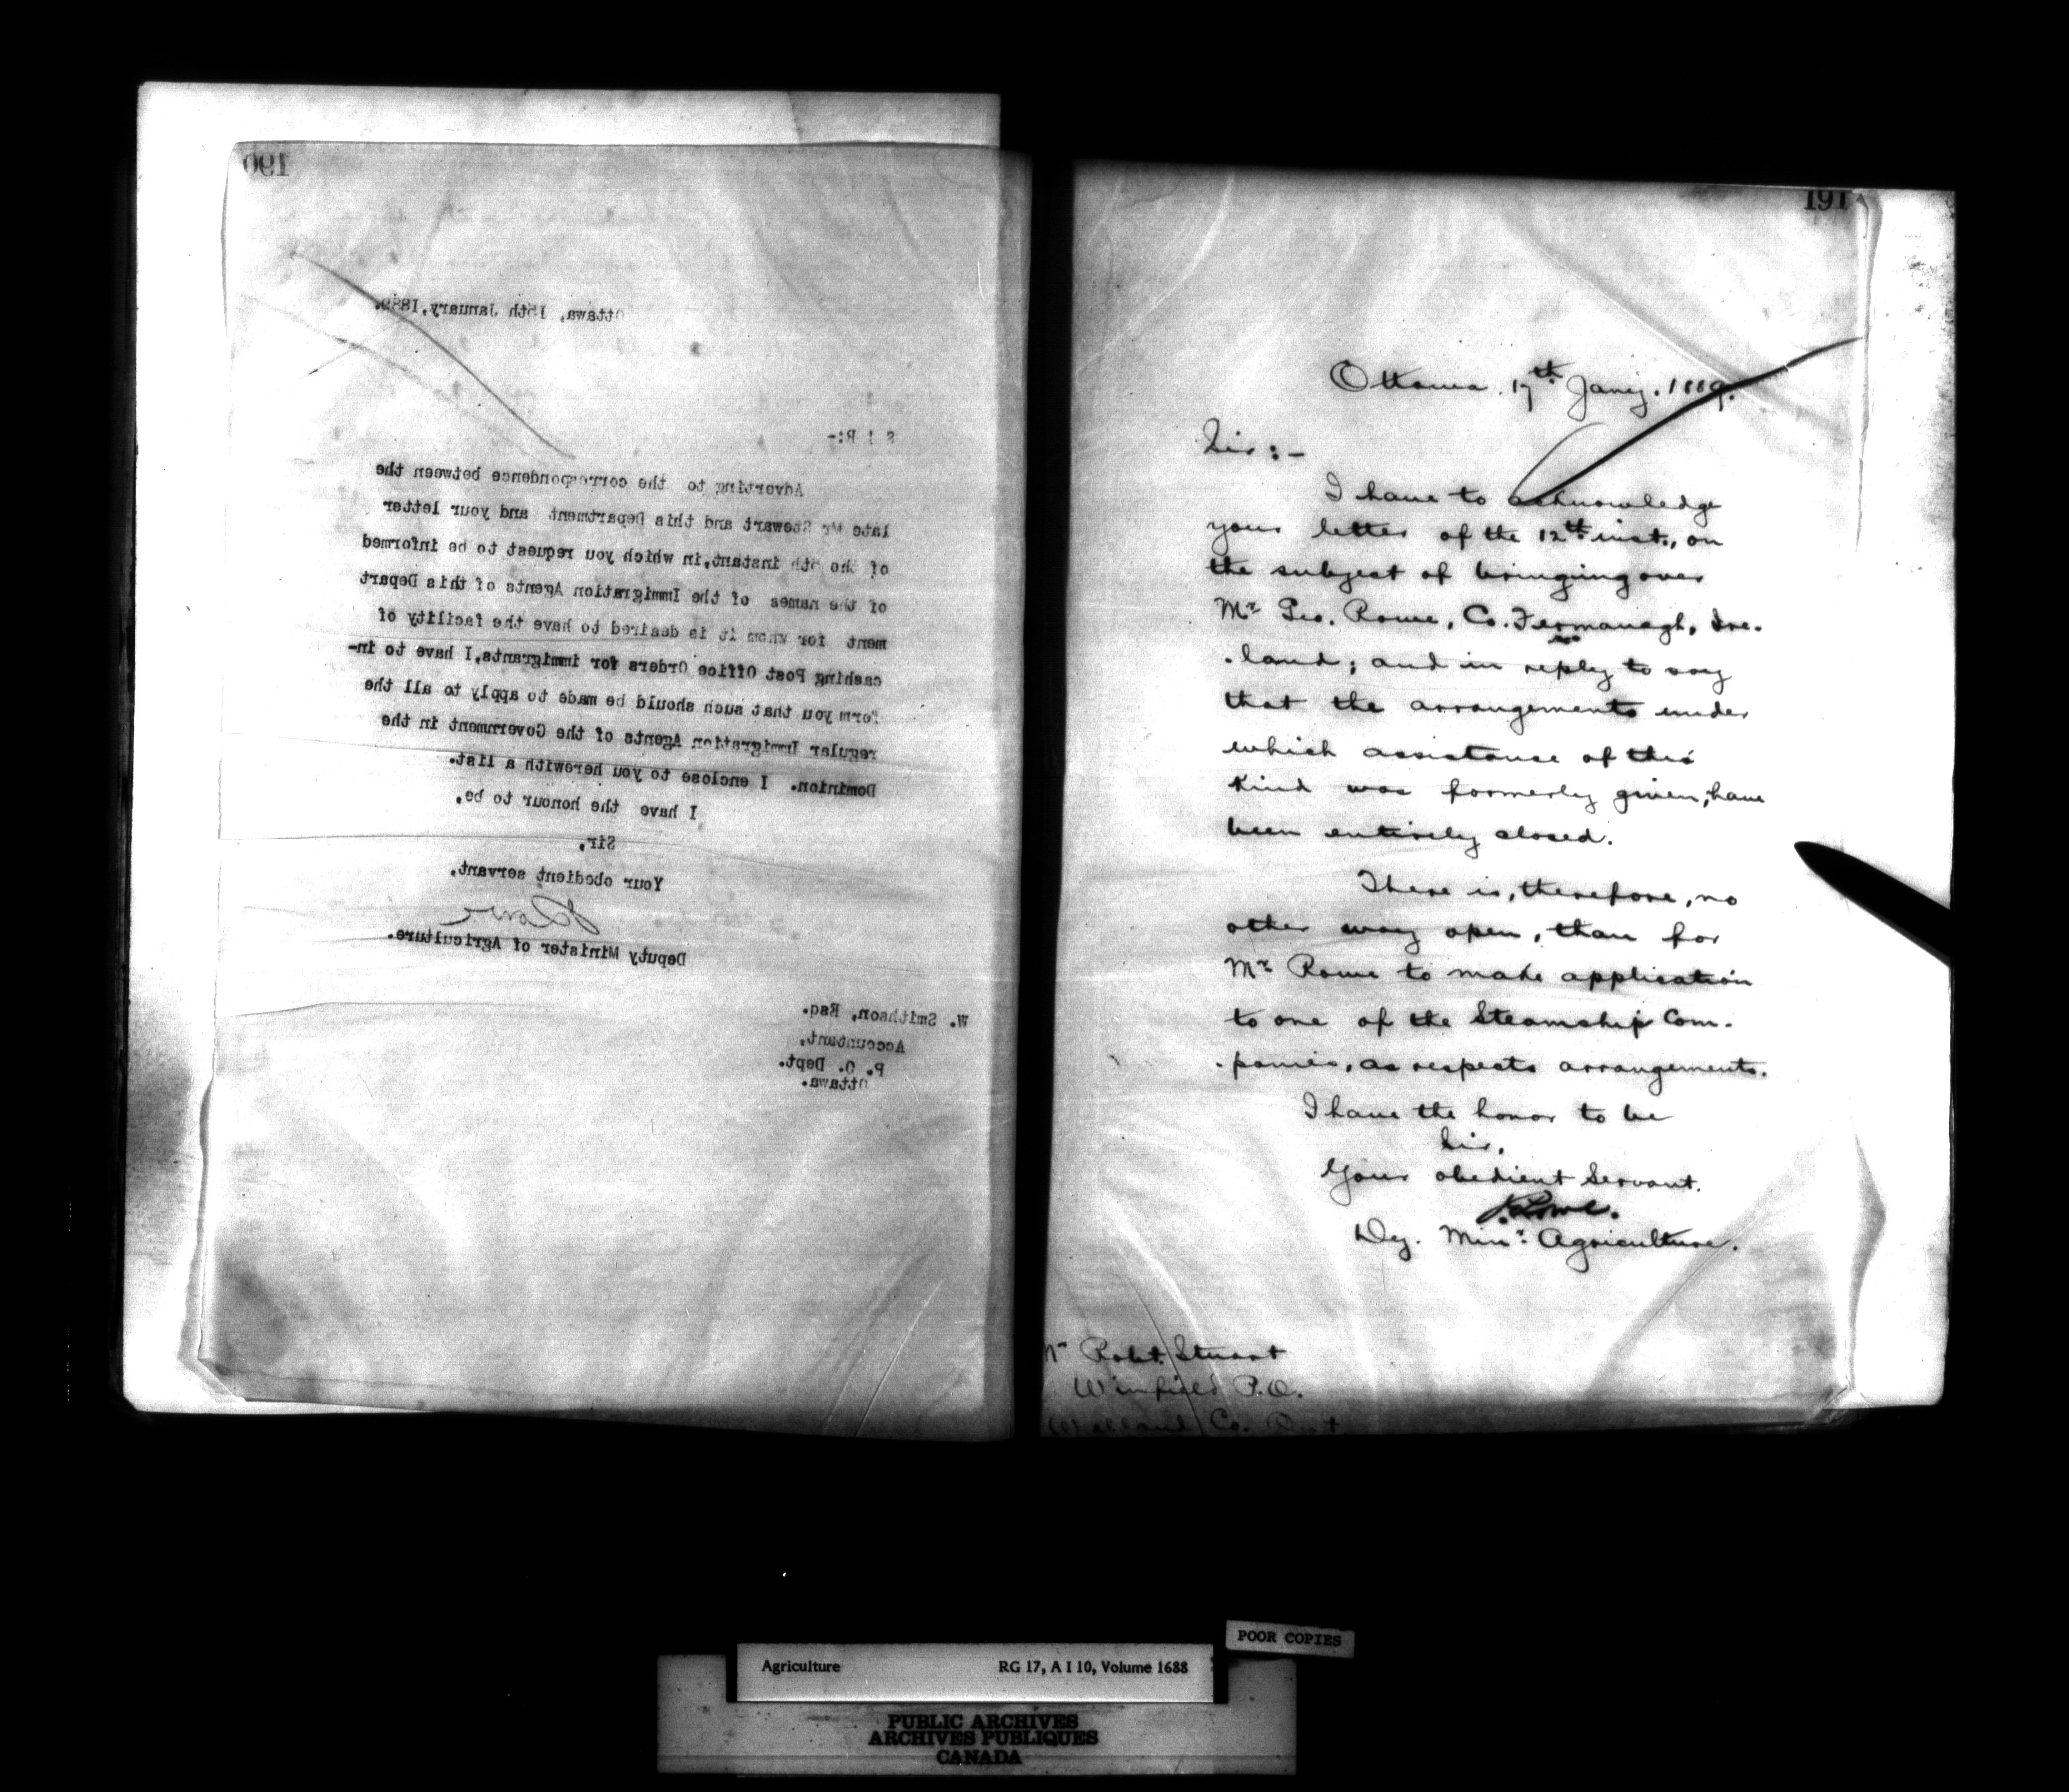 190
Ottawa, 15th January, 1889.
S I R:-
Adverting to the correspondence between the
late Mr Stewart and this Department and your letter
of the 5th instant, in which you request to be informed
of the names of the Immigration Agents of this Depart
ment for whom it is desired to have the facility of
cashing Post Office Orders for immigrants, I have to in-
form you that such should be made to apply to all the
regular Immigration Agents of the Government in the
Dominion. I enclose to you herewith a list.
I have the honour to be,
Sir,
Your obedient servant,
Deputy Minister of Agriculture.
W. Smithson, Esq.
Accountant,
P. O. Dept.
Ottawa.
191
Ottawa. 17th Jany. 1889.
Sir:-
I have to acknowledge
your letter of the 12th inst., on
the subject of bringing over
Mr Geo. Rowe, Co. Fermanagh, Ire-
-land; and in reply to say
that the arrangements under
which assistance of this
kind was formerly given, have
been entirely closed.
There is, therefore, no
other way open, than for
Mr Rowe to make application
to one of the Steamship Com-
-panies, as respects arrangements.
I have the honor to be
Sir,
Your obedient Servant.
J. Lowe.
Dy. Minr. Agriculture.
Mr Robt. Stuart
Winfield P.O.
Welland Co. Ont
POOR COPIES
Agriculture RG 17, A I 10, Volume 1688
PUBLIC ARCHIVES
ARCHIVES PUBLIQUES
CANADA